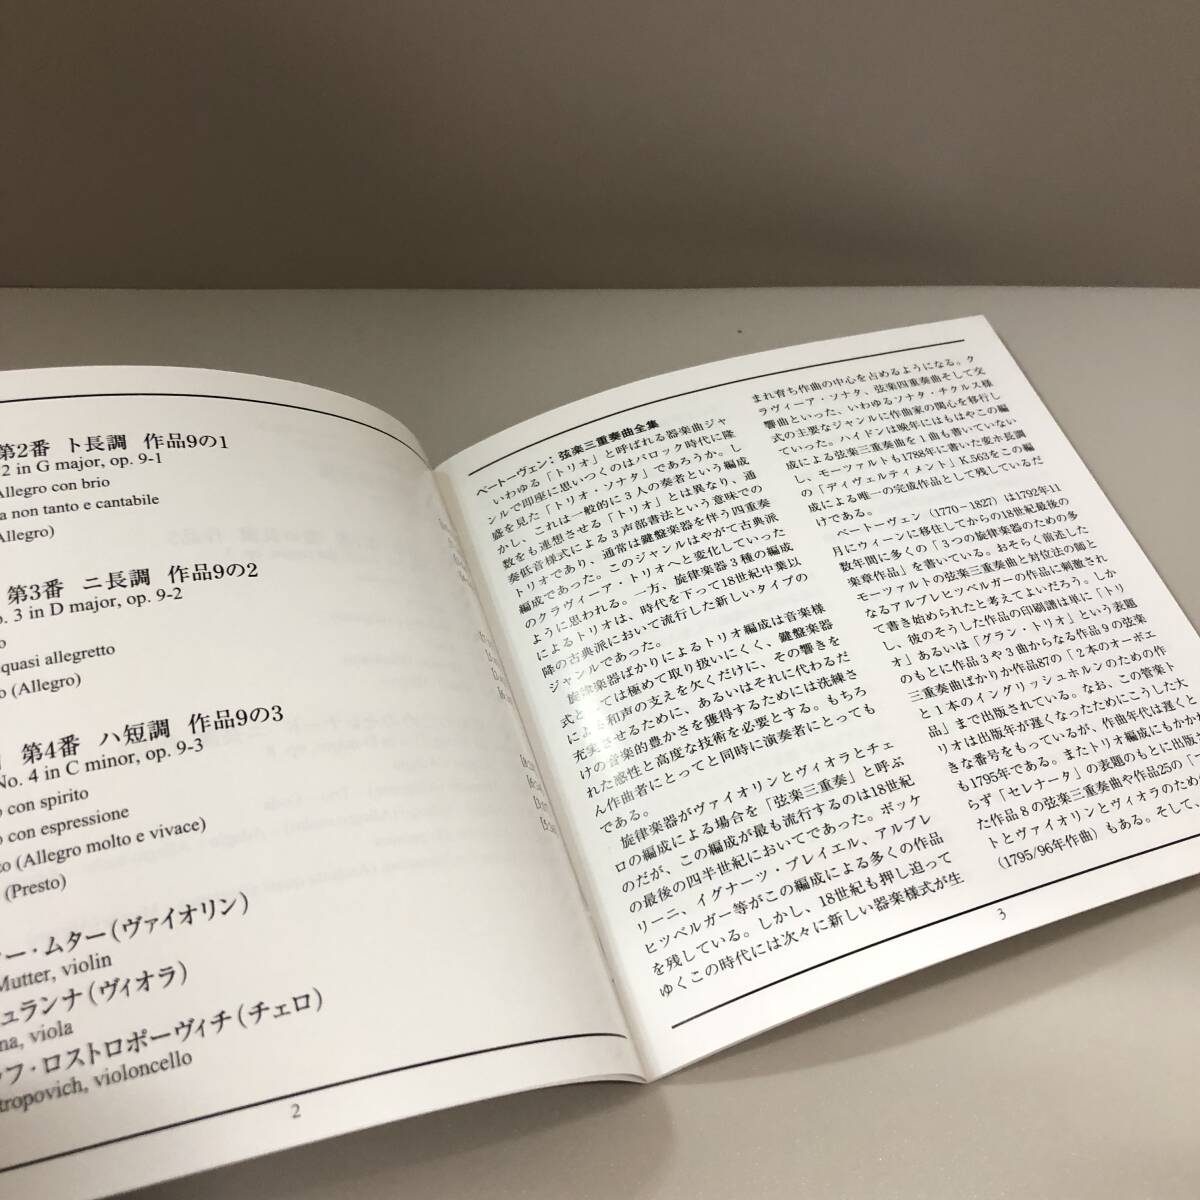 第2番 ト長調 作品9の1
2 in G major, op. 9-1
Allegro con brio
a non tanto e cantabile
Allegro)
第3番 ニ長調 作品9の2
o. 3 in D major, op. 9-2
quasi allegretto
o (Allegro)
第4番 ハ短調 作品9の3
No. 4 in C minor, op. 9-3
o con spirito
o con espressione
zo (Allegro molto e vivace)
(Presto)
ー・ムター(ヴァイオリン)
Mutter, violin
ュランナ(ヴィオラ)
na, viola
ラフ・ロストロポーヴィチ(チェロ)
tropovich, violoncello
2
ベートーヴェン:弦楽三重奏曲全集
いわゆる「トリオ」と呼ばれる器楽曲ジャ
ンルで即座に思いつくのはバロック時代に隆
盛を見た「トリオ・ソナタ」であろうか。し
かし、これは一般的に3人の奏者という編成
数をも連想させる「トリオ」とは異なり、通
奏低音様式による3声部書法という意味での
トリオであり、通常は鍵盤楽器を伴う四重奏
編成であった。このジャンルはやがて古典派
のクラヴィーア・トリオへと変化していった
ように思われる。一方、旋律楽器3種の編成
によるトリオは、時代を下って18世紀中葉以
降の古典派において流行した新しいタイプの
ジャンルであった。
旋律楽器ばかりによるトリオ編成は音楽様
式としては極めて取り扱いにくく、鍵盤楽器
による和声の支えを欠くだけに、その響きを
充実させるために、あるいはそれに代わるだ
けの音楽的豊かさを獲得するためには洗練さ
れた感性と高度な技術を必要とする。もちろ
ん作曲者にとってと同時に演奏者にとっても
である。
旋律楽器がヴァイオリンとヴィオラとチェ
ロの編成による場合を「弦楽三重奏」と呼ぶ
のだが、この編成が最も流行するのは18世紀
の最後の四半世紀においてであった。ボッケ
リーニ、イグナーツ・プレイエル、アルブレ
ヒツベルガー等がこの編成による多くの作品
を残している。しかし、18世紀も押し迫って
ゆくこの時代には次々に新しい器楽様式が生
まれ育ち作曲の中心を占めるようになる。ク
ラヴィーア・ソナタ、弦楽四重奏曲そして交
響曲といった、いわゆるソナタ・チクルス様
式の主要なジャンルに作曲家の関心を移行し
ていった。ハイドンは晩年にはもはやこの編
成による弦楽三重奏曲を1曲も書いていない
し、モーツァルトも1788年に書いた変ホ長調
の「ディヴェルティメント」K.563をこの編
成による唯一の完成作品として残しているだ
けである。
ベートーヴェン(1770−1827)は1792年11
月にウィーンに移住してからの18世紀最後の
数年間に多くの「3つの旋律楽器のための多
楽章作品」を書いている。おそらく前述した
モーツァルトの弦楽三重奏曲と対位法の師と
なるアルブレヒツベルガーの作品に刺激され
て書き始められたと考えてよいだろう。しか
し、彼のそうした作品の印刷譜は単に「トリ
オ」あるいは「グラン・トリオ」という表題
のもとに作品3や3曲からなる作品9の弦楽
三重奏曲ばかりか作品87の「2本のオーボエ
と1本のイングリッシュホルンのための作
品」まで出版されている。なお、この管楽ト
リオは出版年が遅くなったためにこうした大
きな番号をもっているが、作曲年代は遅くと
も1795年である。またトリオ編成にもかかわ
らず「セレナータ」の表題のもとに出版され
た作品8の弦楽三重奏曲や作品25の「フ
トとヴァイオリンとヴィオラのための
(1795/96年作曲)もある。そして、
3